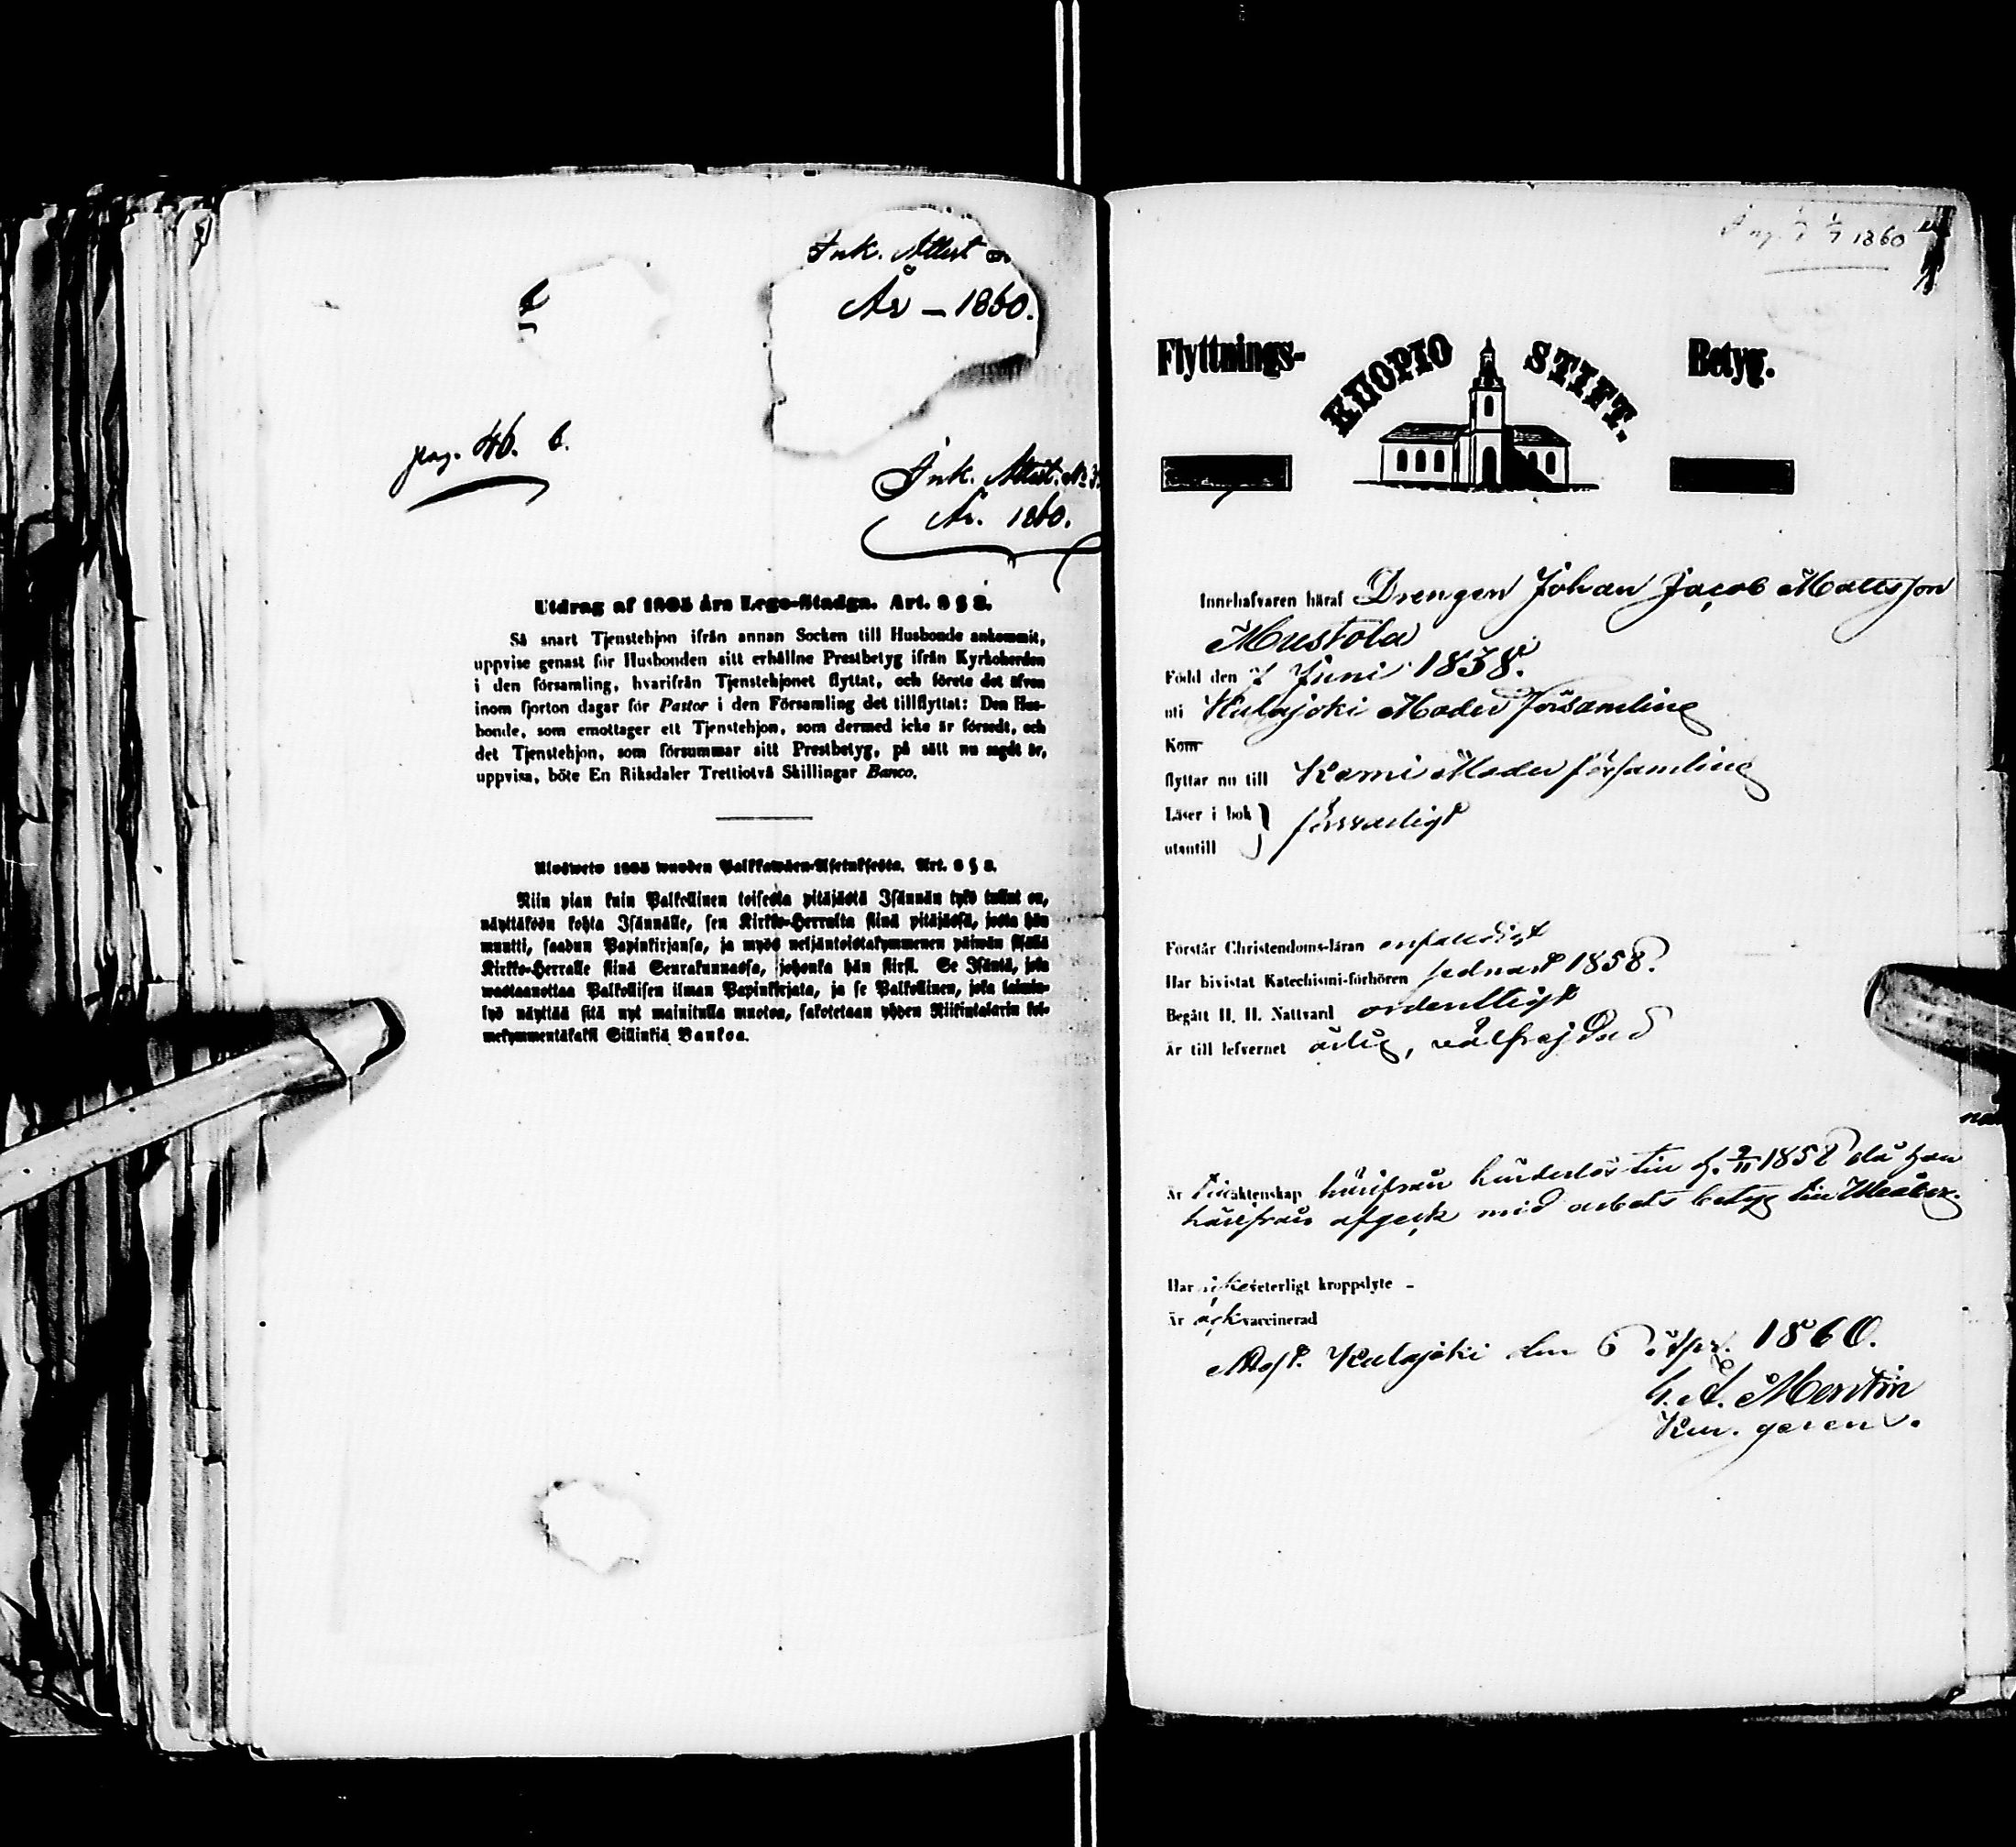 Ink. Attest
År — 1860.
pag. 46. b.
Ink. Attest. No 3
År. 1860.
Utdrag af 1805 års Lego-Stadga. Art. 8 § 2.
Så snart Tjenstehjon ifrån annan Socken till Husbonde ankommit,
uppvise genast för Husbonden sitt erhållne Prestbetyg ifrån Kyrkoherden
i den församling, hvarifrån Tjenstehjonet flyttat, och förete det äfven
inom fjorton dagar för Pastor i den Församling det tillflyttat: Den Hus-
bonde, som emottager ett Tjenstehjon, som dermed icke är försedt, och
det Tjenstehjon, som försummar sitt Prestbetyg, på sätt nu sagdt är,
uppvisa, böte En Riksdaler Trettiotvå Skillingar Banco.
Ulosweto 1805 wuoden Palkkawäen-Asetuksesta. Art. 8 § 2.
Niin pian kuin Palkollinen toisesta pitäjästä Isännän tykö tullut on,
näyttäköön kohta Isännälle, sen Kirkko-Herralta siinä pitäjässä, josta hän
muutti, saadun Papinkirjansa, ja myös neljäntoistakymmenen päiwän sisällä
Kirkko-Herralle siinä Seurakunnassa, johonka hän siirsi. Se Isäntä, joka
wastaanottaa Palkollisen ilman Papinkirjata, ja se Palkollinen, joka laimin-
lyö näyttää sitä nyt mainitulla muotoa, sakotetaan yhden Riikintalarin kol-
mekymmentäkaksi Sillinkiä Bankoa.
1860
Flyttnings- KUOPIO STIFT. Betyg.
Innehafvaren häraf Drengen Johan Jacob Mattsson
Mustola
Född den 7 Juni 1838.
uti Kalajoki Moder församling
Kom
flyttar nu till Kemi Moder församling
Läser i bok } försvarligt
utantill
Förstår Christendoms-läran enfaldigt
Har bivistat Katechismi-förhören sednast 1858.
Begått H. H. Nattvard ordentligt
Är till lefvernet ärlig, välfrejdad
Är till äktenskap härifrån hinderlös till d. 2/11 1858 då han
härifrån afgick med arbets betyg till Uleåborg.
Har icke veterligt kroppslyte -
Är ock vaccinerad
Attest. Kalajoki den 6 Apr. 1860.
G. A. Montin
Km. gerens.